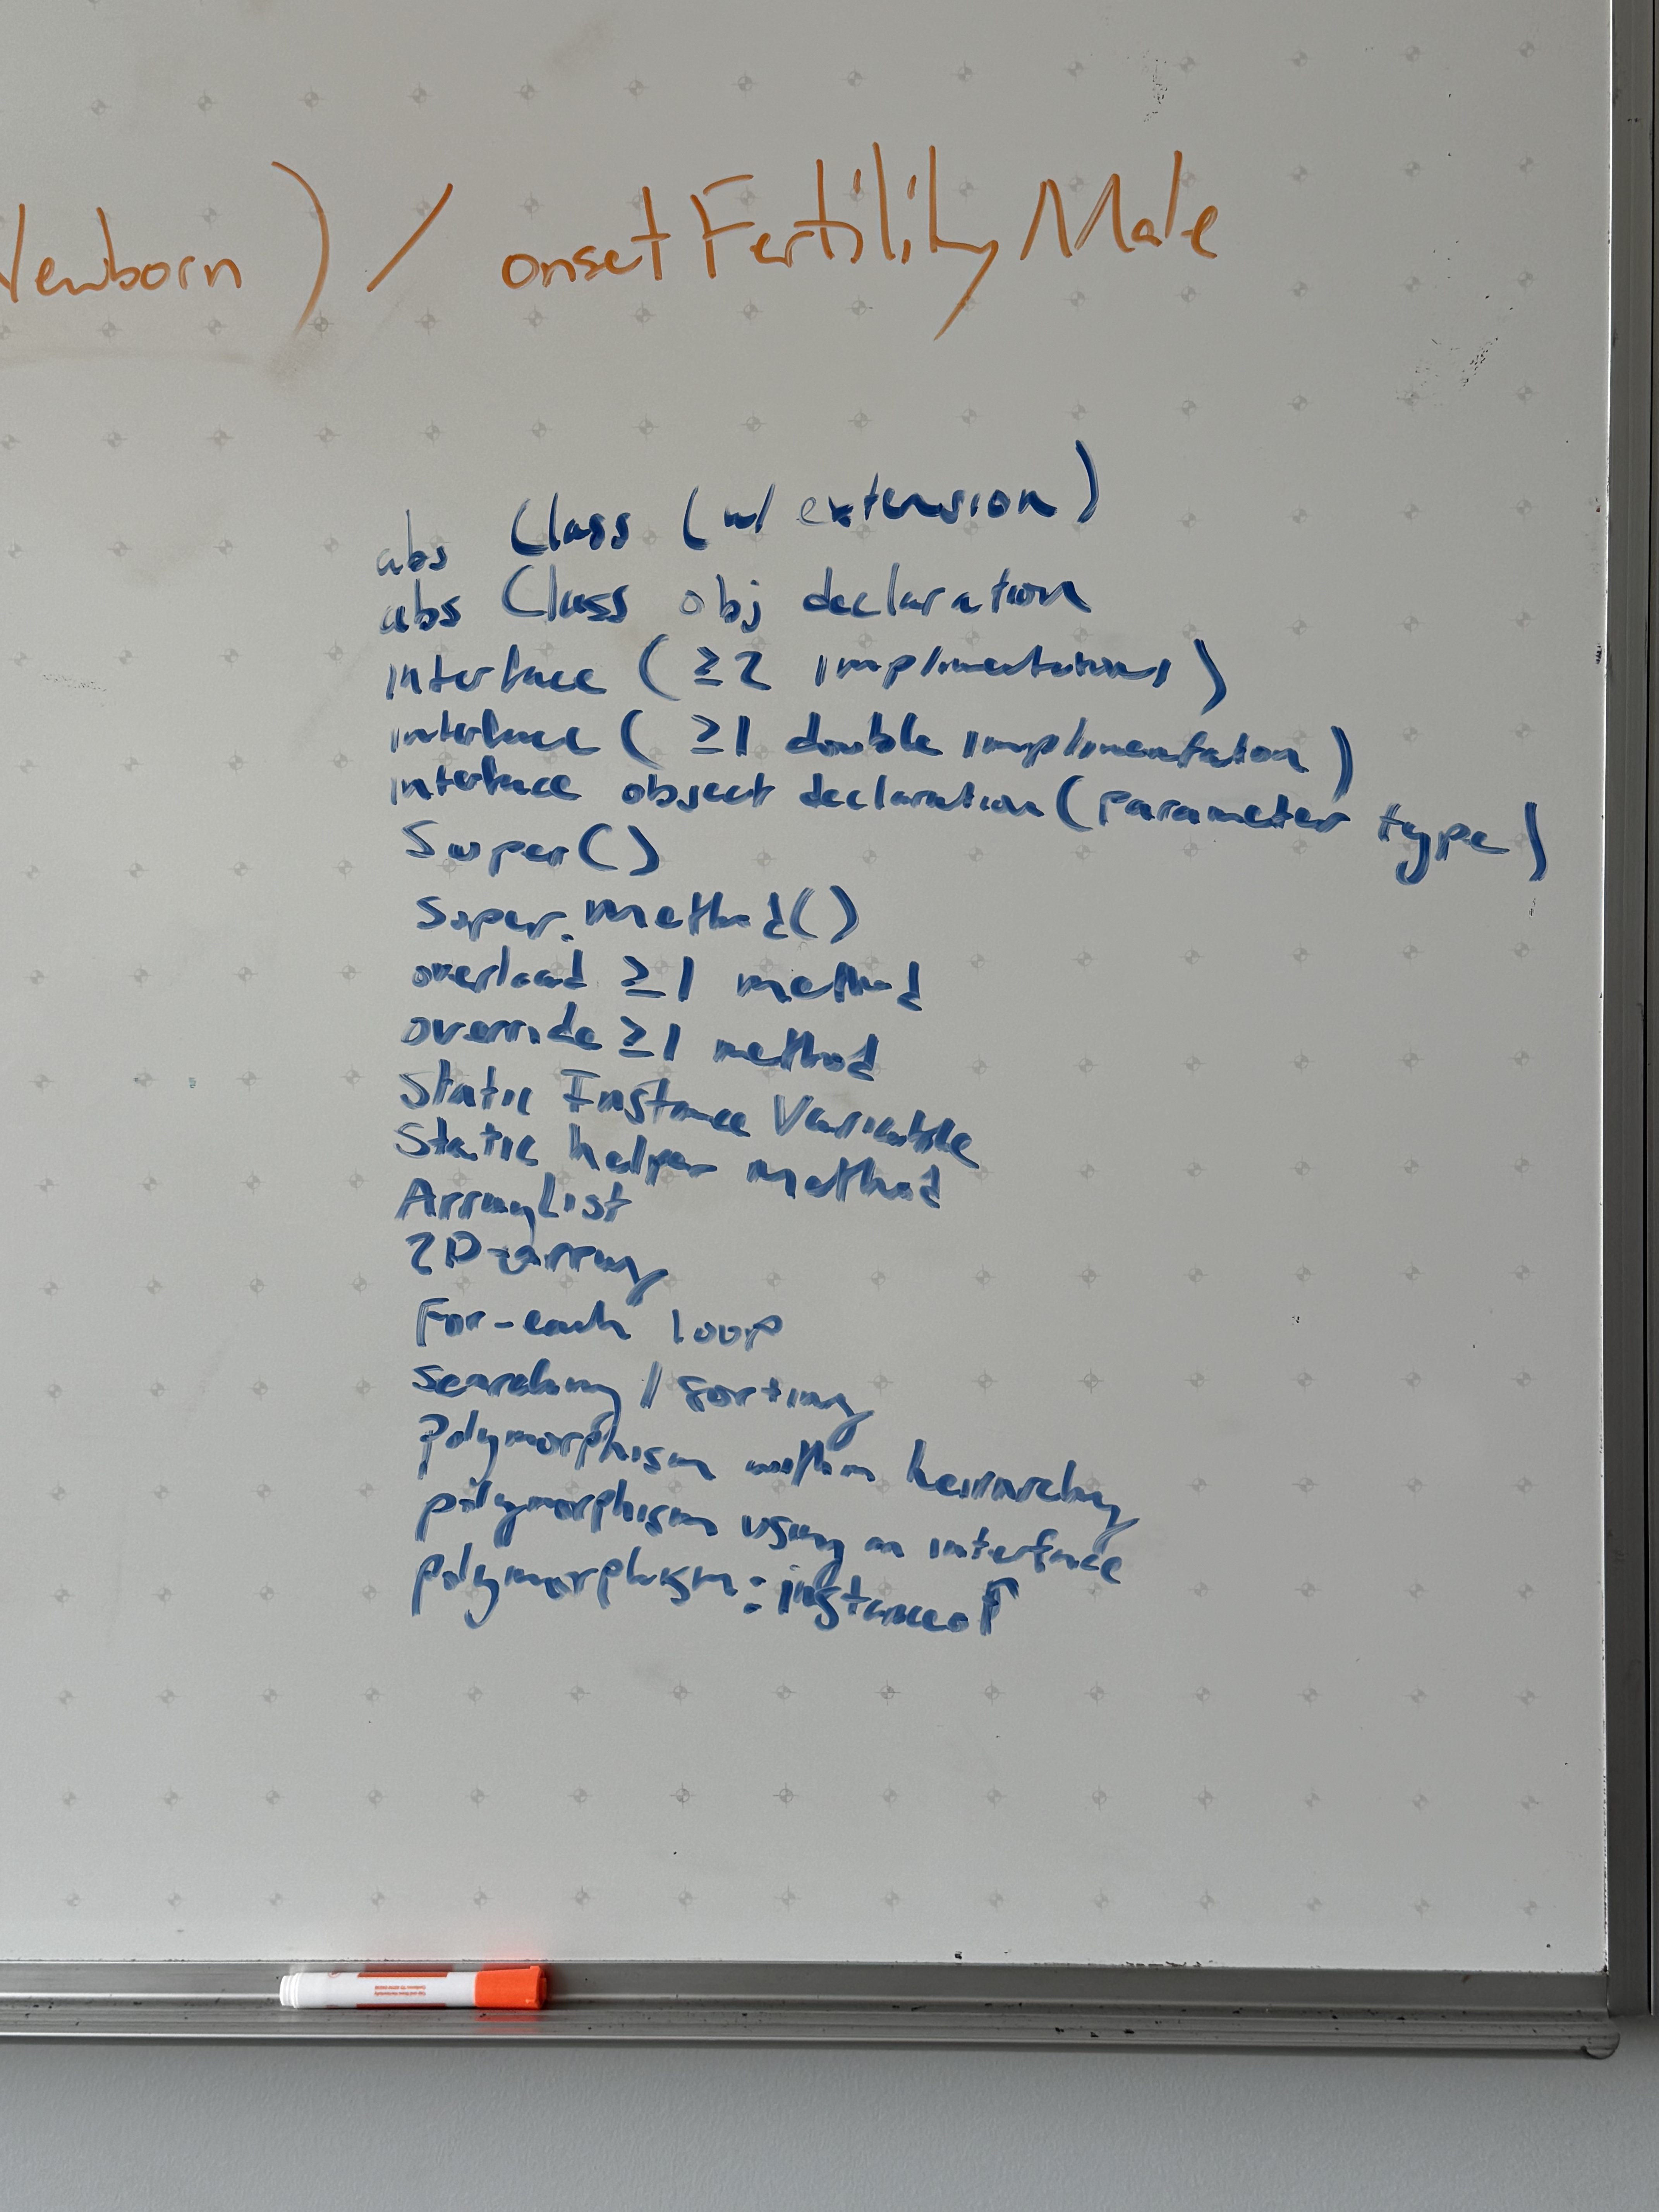 Newborn) / onsetFertilityMale
abs Class (w/ extension)
abs Class obj declaration
interface (≥2 implimentations)
interface (≥1 double implimentation)
interface object declaration (parameter type)
Super()
super.method()
overload ≥1 method
override ≥1 method
Static Instance Variable
Static helper method
ArrayList
2D-array
For-each loop
searching / sorting
polymorphism within heirarchy
polymorphism using an interface
polymorphism: instanceof